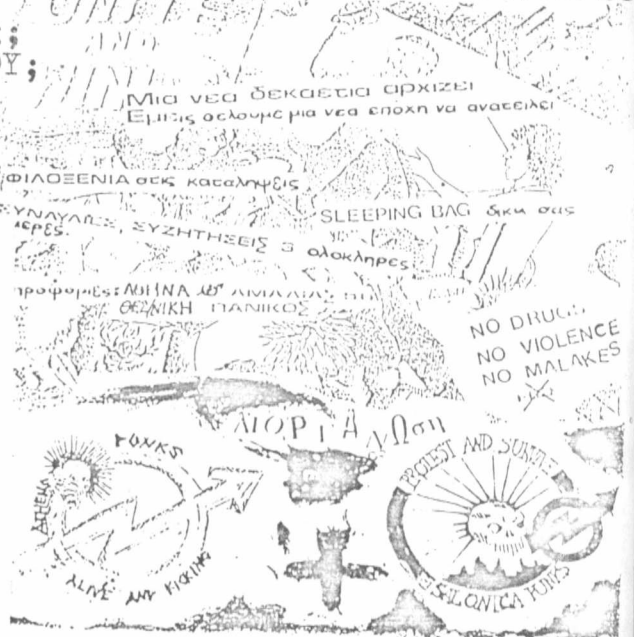 Μια νεα δεκαετια αρχιζει
Εμεις θελουμε μια νεα εποχη να ανατειλει
ΦΙΛΟΞΕΝΙΑ στις καταληψεις
SLEEPING BAG δικη σας
ΣΥΖΗΤΗΣΕΙΣ 3 ολοκληρες
ΑΘΗΝΑ
ΘΕΣ/ΝΙΚΗ ΠΑΝΙΚΟΣ
NO DRUGS
NO VIOLENCE
NO MALAKES
ΔΙΟΡΓΑΝΩση
PUNKS
ATHENS
ALIVE AND KICKING
PROTEST AND SURVIVE
PUNKS